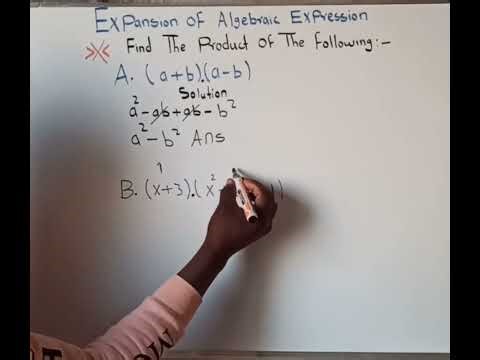 Expansion of Algebraic Expression
Find The Product of The following:-
A. (a+b).(a-b)
Solution
a² - ab + ab - b²
a² - b² Ans
1
B. (x+3).(x²
MO